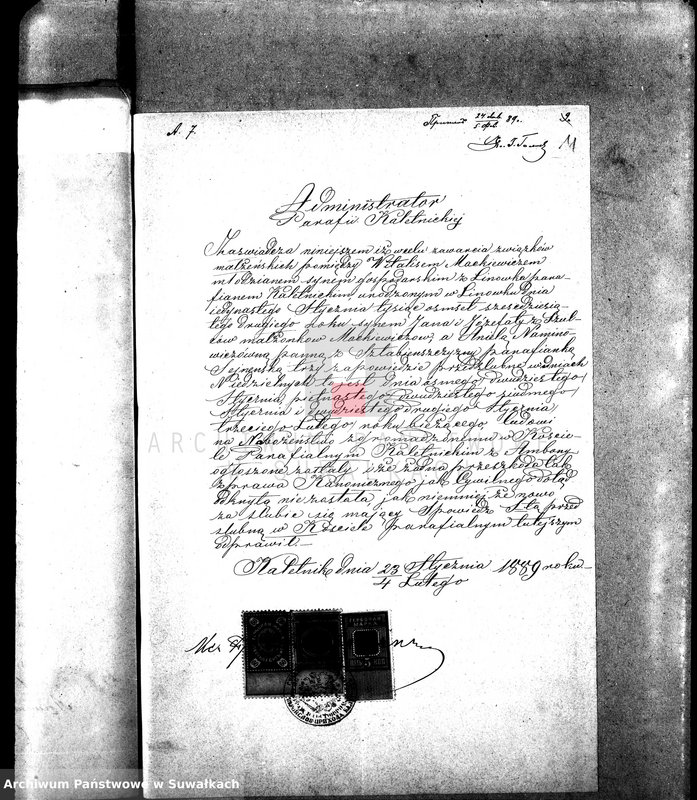 A. 7
Administrator
Parafii Kaletnickiej
Zaświadcza niniejszem iż w celu zawarcia związków
małżeńskich pomiędzy Witalisem Mackiewiczem
młodzianem synem gospodarskim z Linowka para-
fianem Kaletnickim urodzonym w Linowku dnia
jedynastego Stycznia tysiąc ośmset sześćdziesią-
tego drugiego roku synem Jana i Józefaty z Szul-
ców małżonków Mackiewiczów, a Anielą Namino-
wiczówną panną z Sztabinszczyzny parafianką
Sejneńską trzy zapowiedzie przedślubne w dniach
Niedzielnych to jest dnia ósmego dwudziestego
Stycznia, piętnastego dwudziestego siódmego
Stycznia i dwudziestego drugiego Stycznia
trzeciego Lutego roku bieżącego ludowi
na Nabożeństwo zgromadzonemu w Koście-
le Parafialnym Kaletnickim z Ambony
ogłoszone zostały i że żadna przeszkoda tak
z prawa Kanonicznego jak Cywilnego dotąd
odkrytą nie została, jak niemniej że nowo
za ślubić się mający Spowiedź Stą przed
ślubną w Kościele parafialnym tutejszym
odprawił.—
Kaletnik dnia 23 Stycznia 1889 roku
4 Lutego
5
ARC
Archiwum Państwowe w Suwałkach